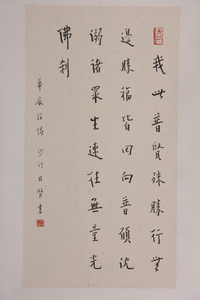 我此普賢殊勝行無
邊勝福皆回向普願沈
溺諸眾生速往無量光
佛剎
華嚴經偈 沙門日賢書